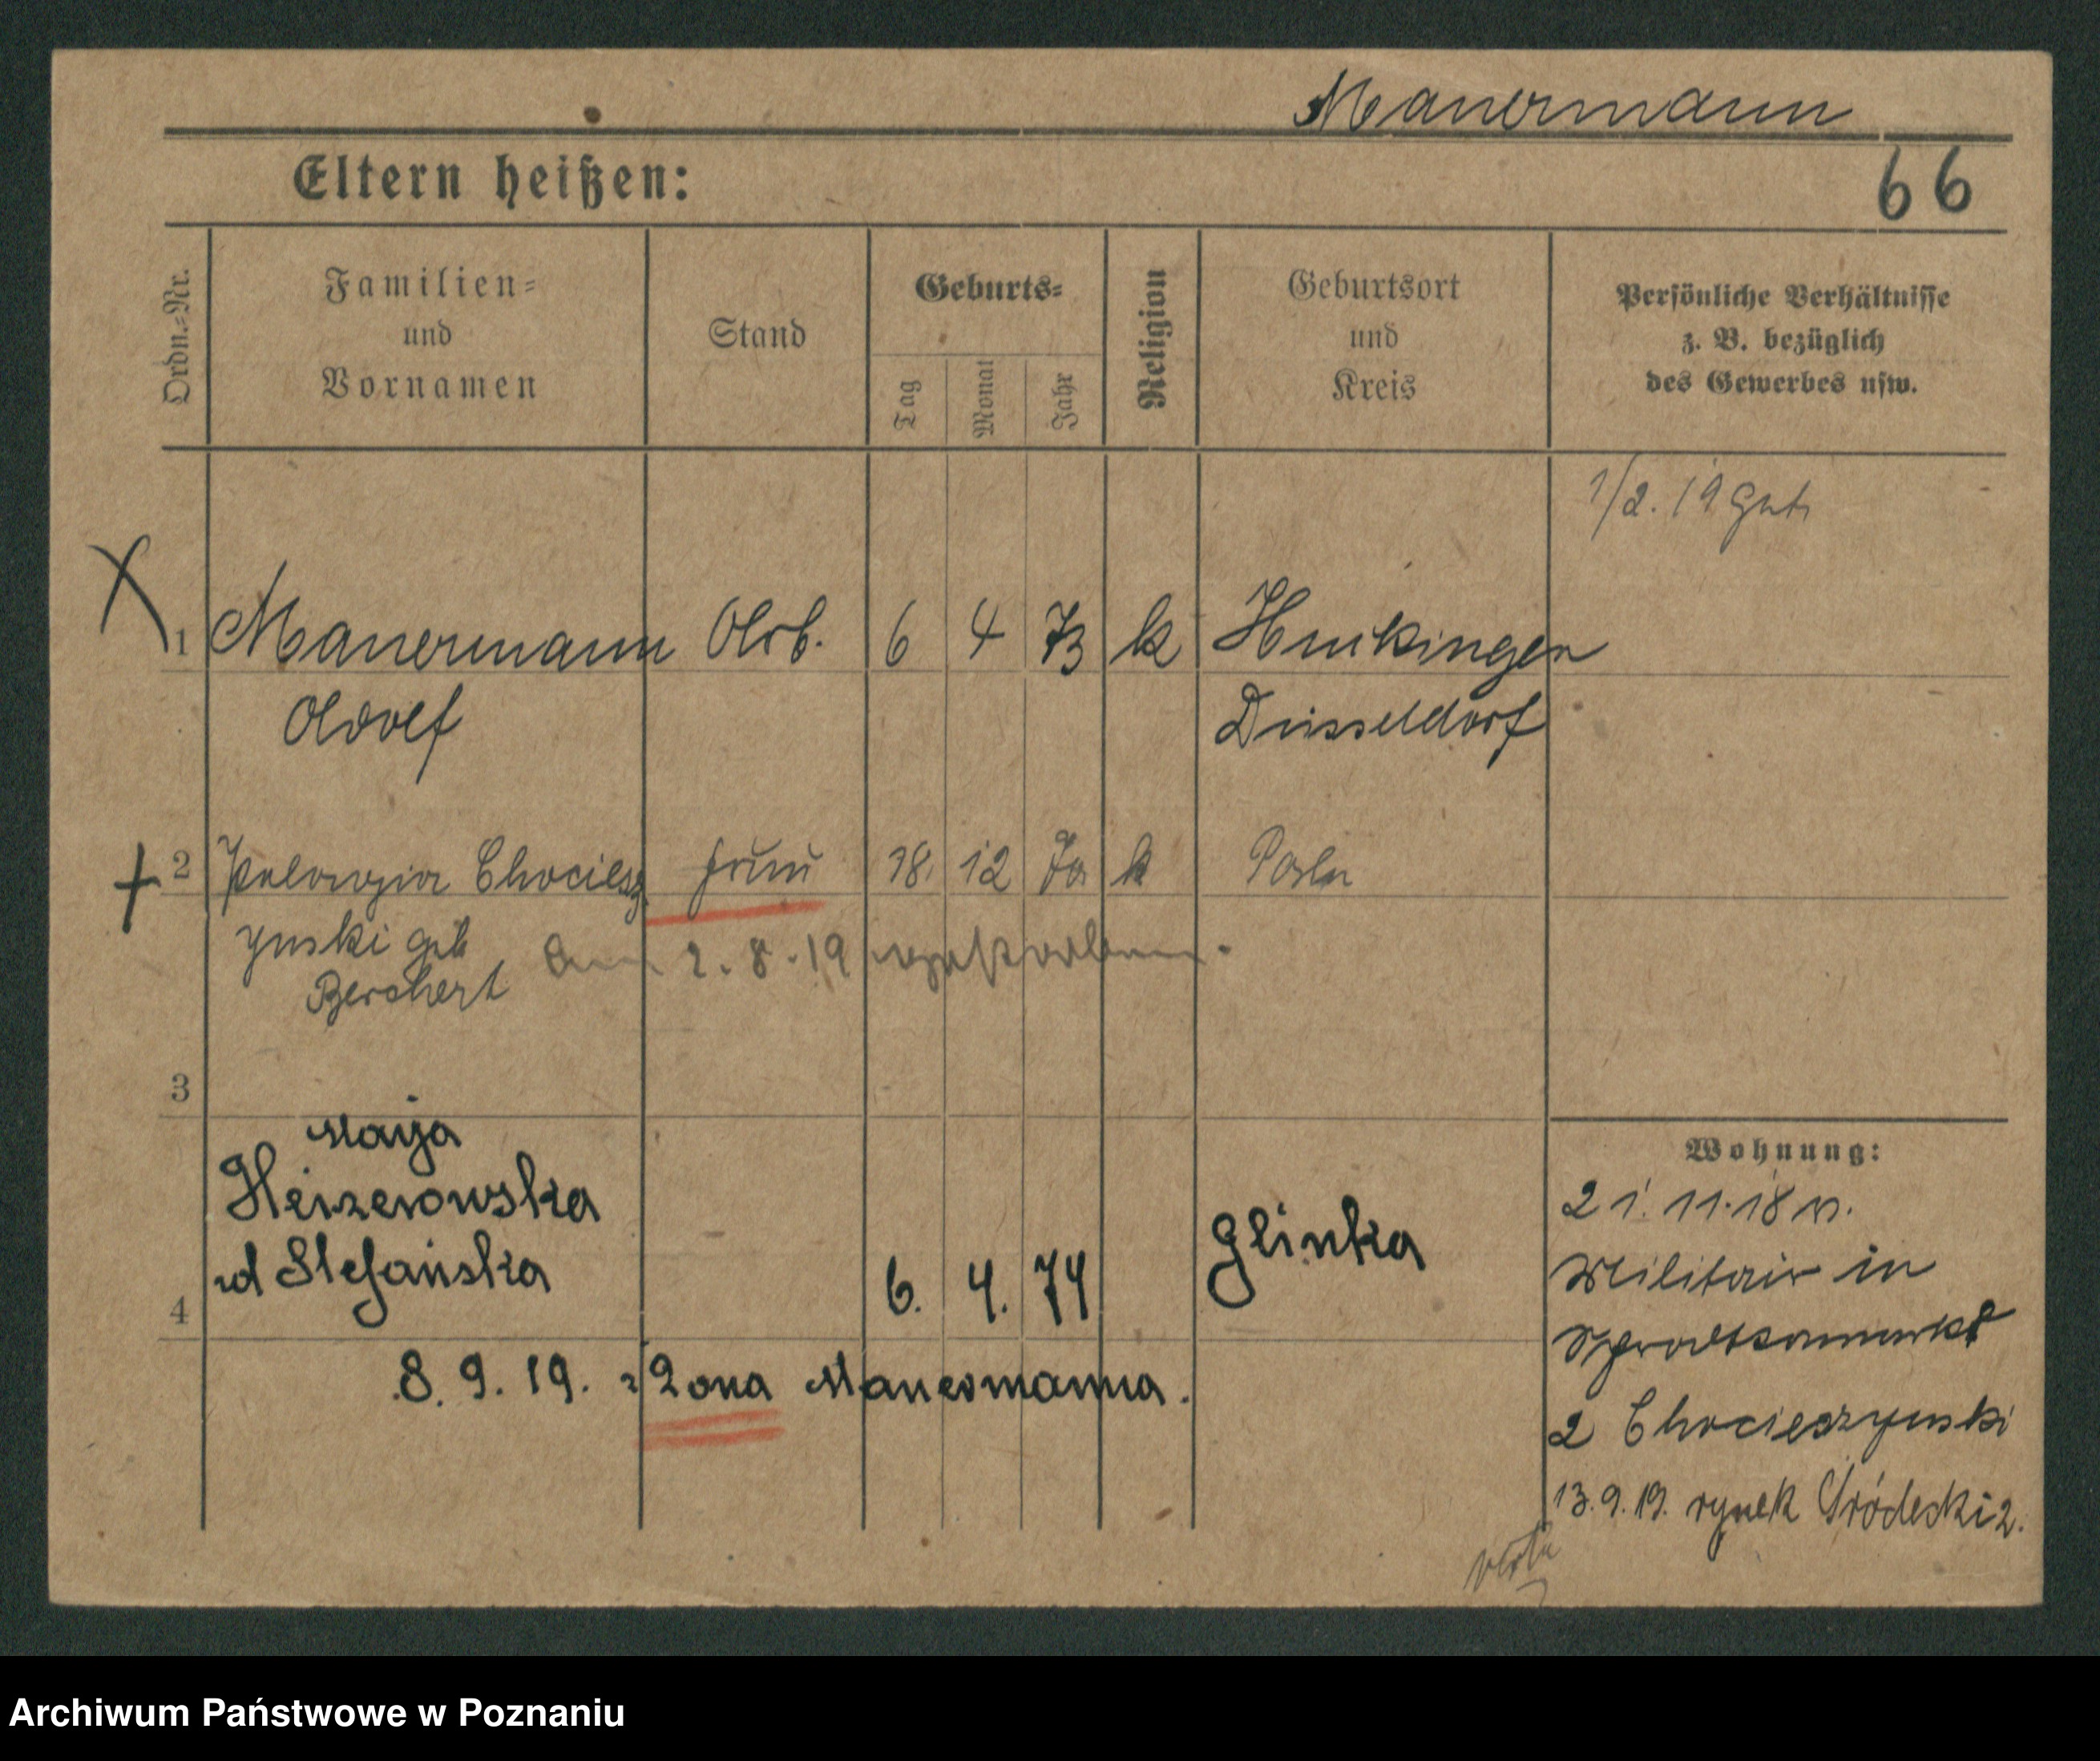 Manermann
Eltern heißen:
66
Ordn.=Nr.
Familien=
und
Vornamen
Stand
Geburts=
Tag
Monat
Jahr
Religion
Geburtsort
und
Kreis
Persönliche Verhältnisse
z. B. bezüglich
des Gewerbes usw.
1/2. 19
1 Manermann Arb. 6 4 73 k
Adolf Düsseldorf
2 Pelagia Chociesz Frau 18. 12 k Posen
ynski geb
Borchert am 2. 8. 19 verstorben.
3
Marja
Stefańska
4 6. 4. 74 Glinka
8. 9. 19. żona Manermanna.
Wohnung:
21. 11. 18 v.
Militair in
2 Chocieszynski
13. 9. 19. rynek Śródecki 2.
Archiwum Państwowe w Poznaniu